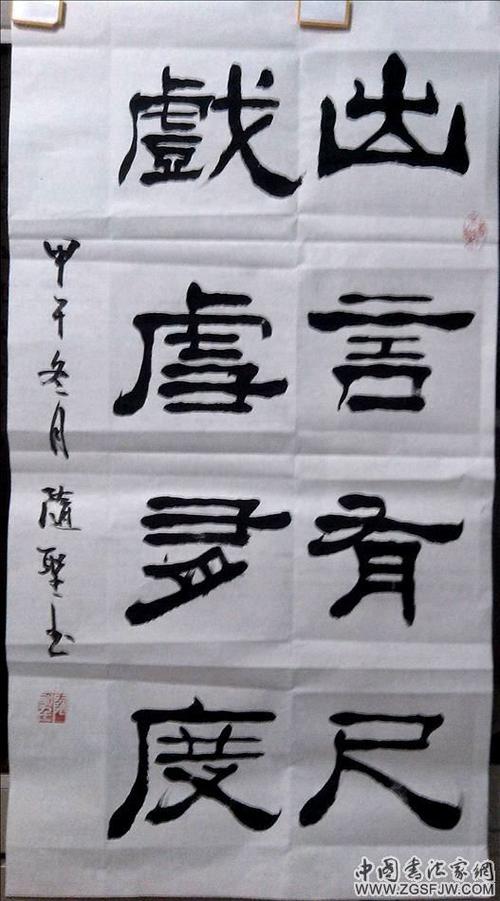 出言有尺
戲虐度
甲午冬月隨聖书
中國书法家網
WWW.ZGSFJW.COM